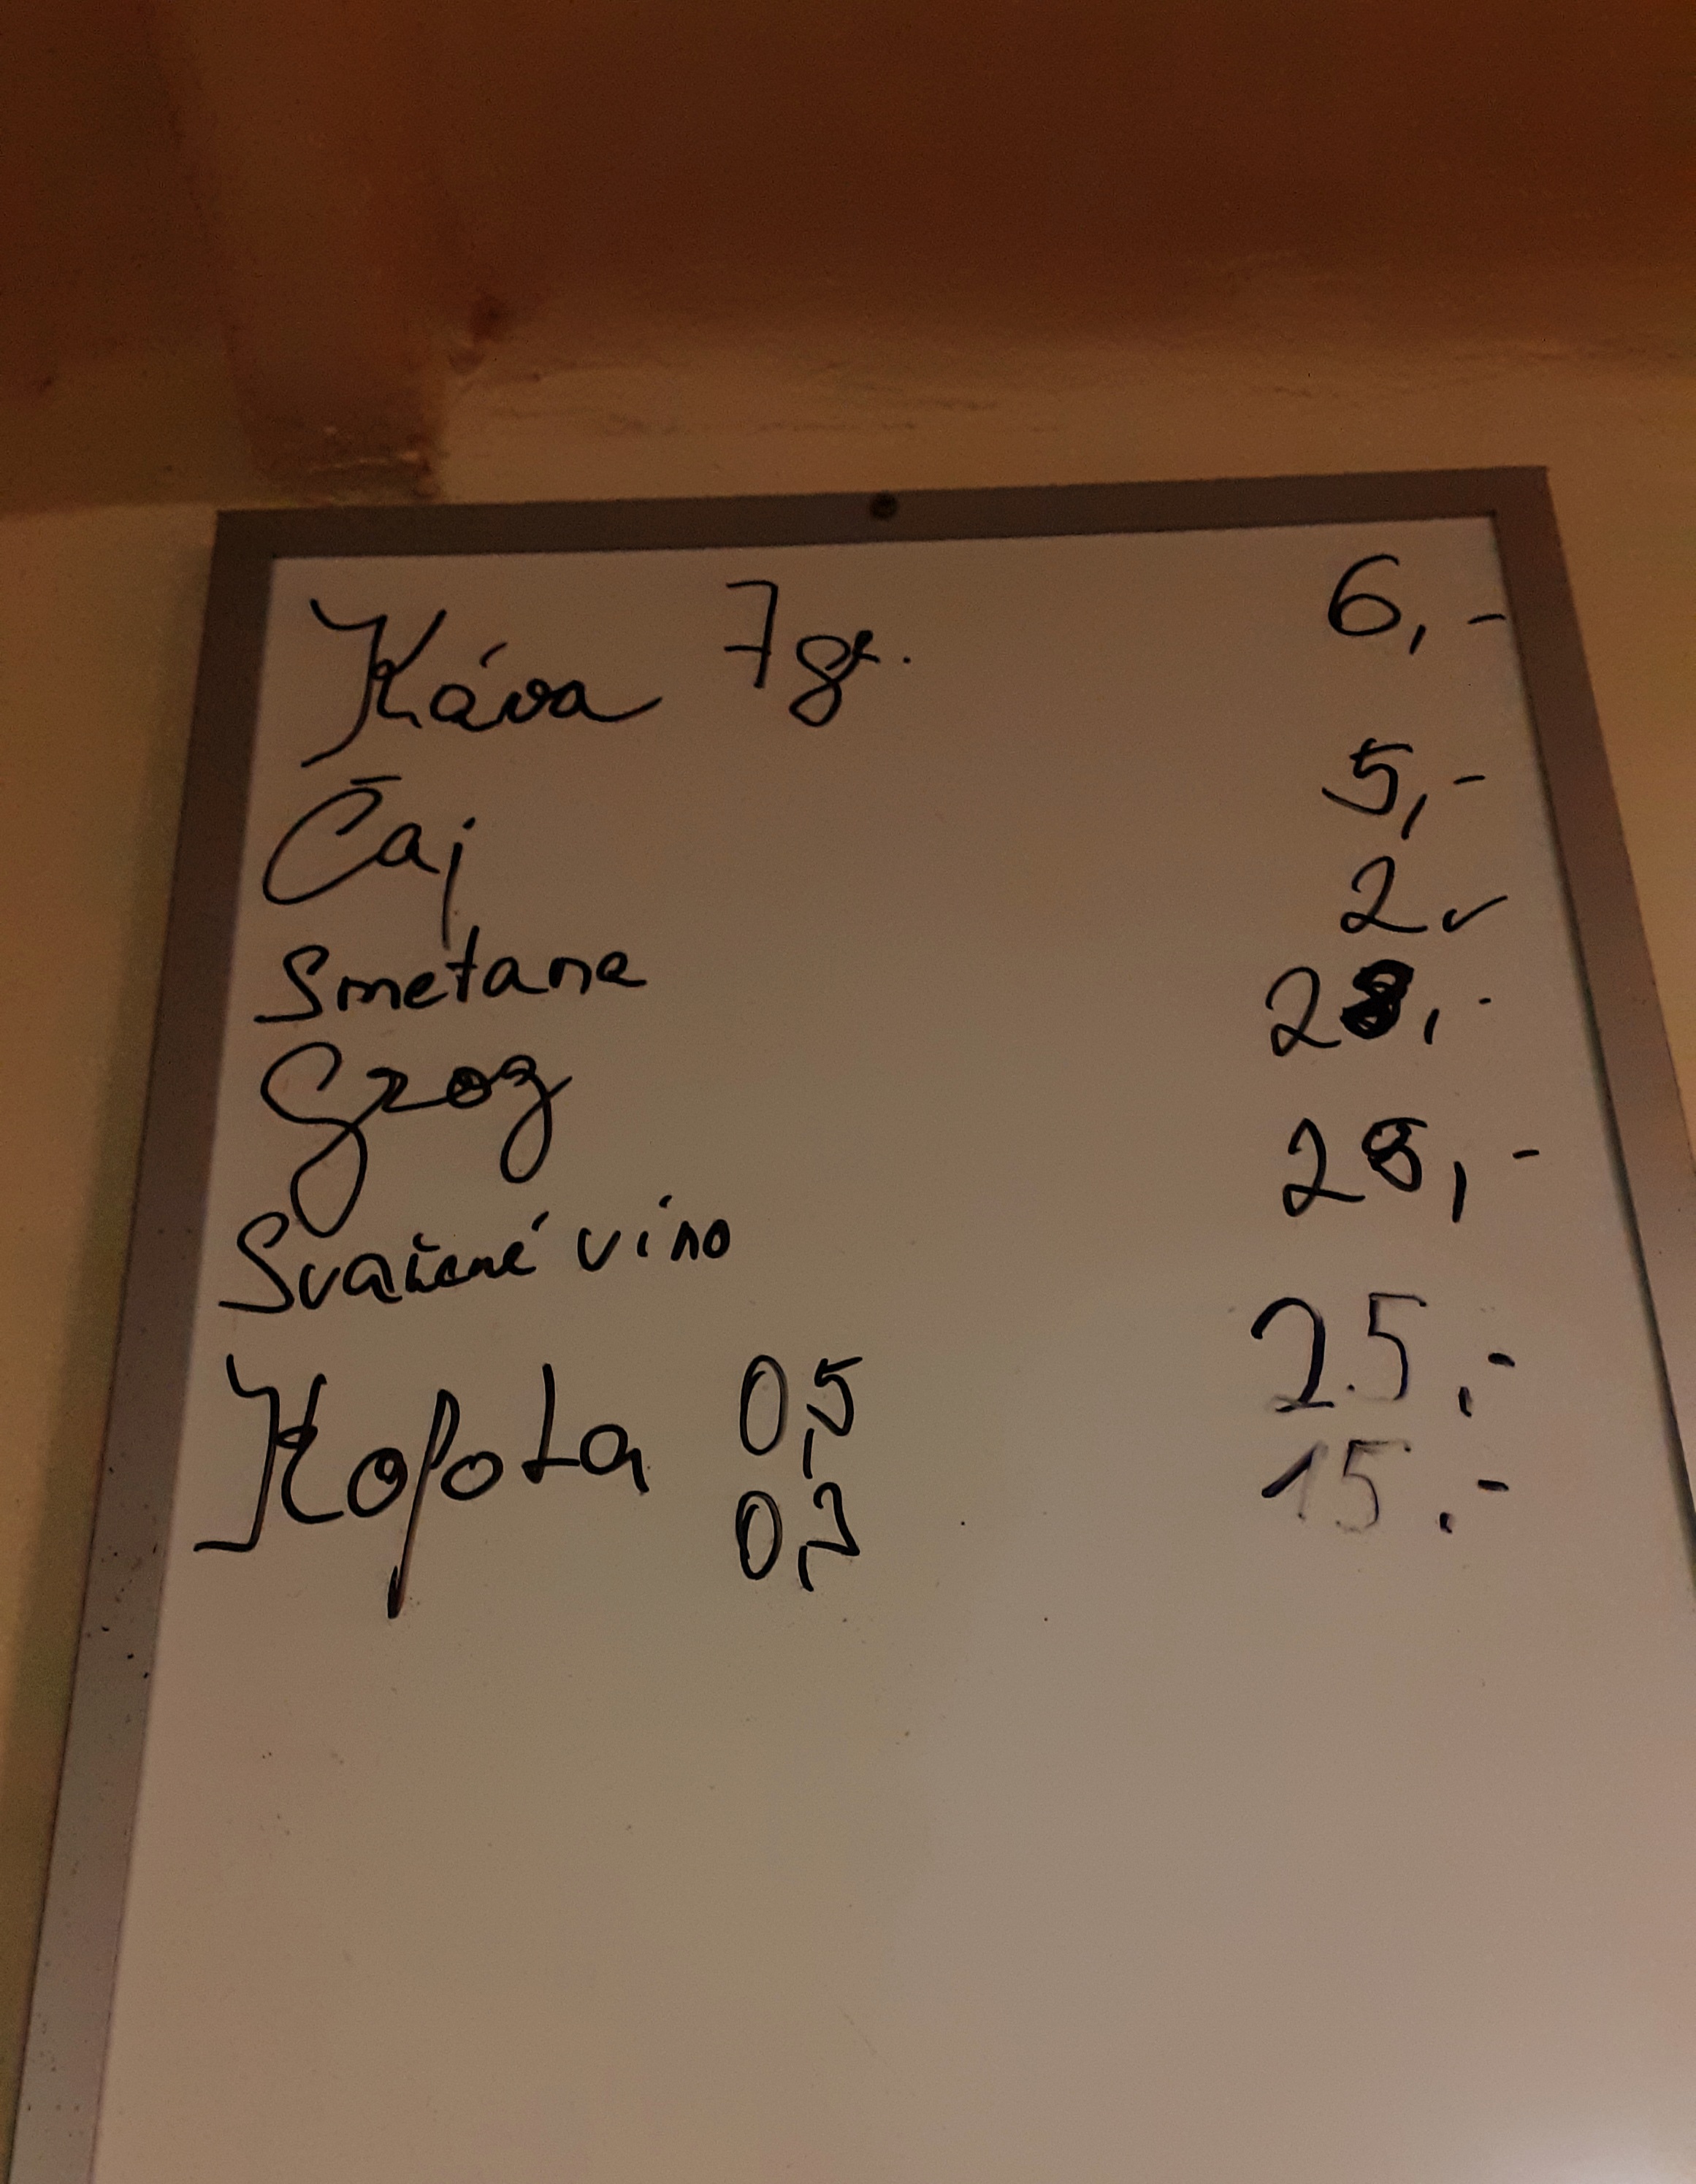 Káva 7gr. 6,-
Čaj 5,-
Smetana 2,-
Grog 28,-
Svařené víno 28,-
Kofola 0,5 25,-
0,3 15,-